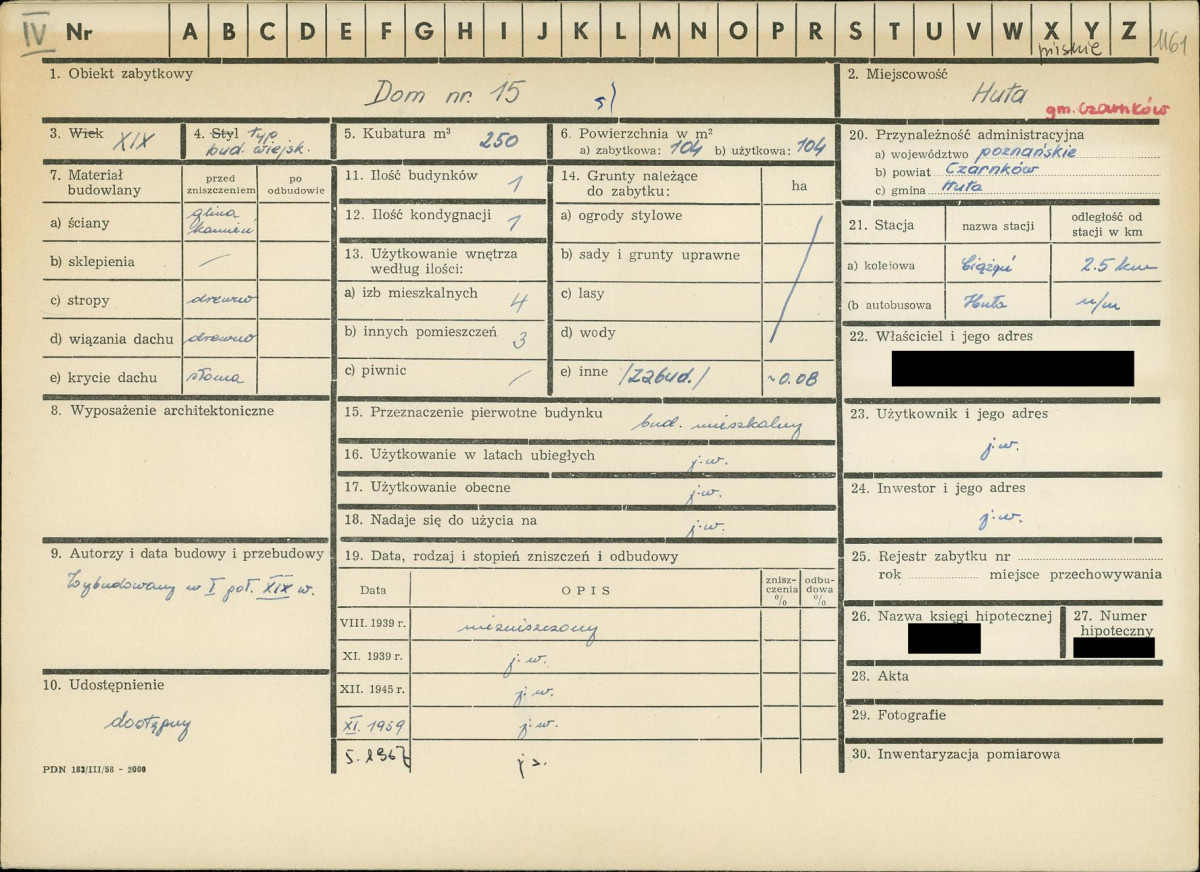 IV Nr A B C D E F G H I J K L M N O P R S T U V W X Y Z 1161
pilskie
1. Obiekt zabytkowy
Dom nr. 15
2. Miejscowość
Huta
gm. Czarnków
3. Wiek
XIX
4. Styl typ
bud. wiejsk.
5. Kubatura m³
250
6. Powierzchnia w m²
a) zabytkowa: 104 b) użytkowa: 104
7. Materiał budowlany
przed zniszczeniem
po odbudowie
a) ściany
glina
kamień
b) sklepienia —
c) stropy drewno
d) wiązania dachu drewno
e) krycie dachu słoma
8. Wyposażenie architektoniczne
9. Autorzy i data budowy i przebudowy
Wybudowany w I poł. XIX w.
10. Udostępnienie
dostępny
PDN 183/III/58 - 2000
11. Ilość budynków 1
12. Ilość kondygnacji 1
13. Użytkowanie wnętrza
według ilości:
a) izb mieszkalnych 4
b) innych pomieszczeń 3
c) piwnic /
14. Grunty należące
do zabytku:
ha
a) ogrody stylowe
b) sady i grunty uprawne
c) lasy
d) wody
e) inne /zabud./ ~0.08
15. Przeznaczenie pierwotne budynku
bud. mieszkalny
16. Użytkowanie w latach ubiegłych
j.w.
17. Użytkowanie obecne
j.w.
18. Nadaje się do użycia na
j.w.
19. Data, rodzaj i stopień zniszczeń i odbudowy
Data
OPIS
znisz-
czenia
%
odbu-
dowa
%
VIII. 1939 r. niezniszczony
XI. 1939 r. j.w.
XII. 1945 r. j.w.
XI. 1959 j.w.
5. 1967
20. Przynależność administracyjna
a) województwo poznańskie
b) powiat Czarnków
c) gmina Huta
21. Stacja
nazwa stacji
odległość od
stacji w km
a) kolejowa 2.5 km
(b autobusowa Huta n/m
22. Właściciel i jego adres
23. Użytkownik i jego adres
j.w.
24. Inwestor i jego adres
j.w.
25. Rejestr zabytku nr
rok miejsce przechowywania
26. Nazwa księgi hipotecznej
27. Numer
hipoteczny
28. Akta
29. Fotografie
30. Inwentaryzacja pomiarowa